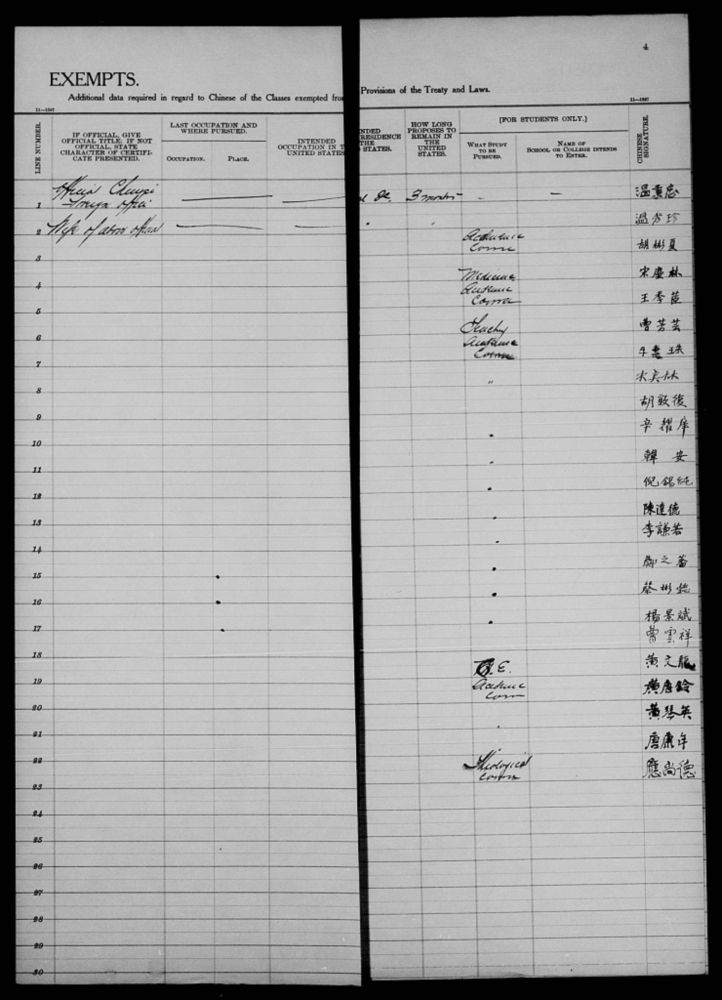 4
EXEMPTS.
Additional data required in regard to Chinese of the Classes exempted from
Provisions of the Treaty and Laws.
11—1897
11—1897
LINE NUMBER.
IF OFFICIAL, GIVE OFFICIAL TITLE; IF NOT OFFICIAL, STATE CHARACTER OF CERTIFICATE PRESENTED.
LAST OCCUPATION AND WHERE PURSUED.
OCCUPATION.
PLACE.
INTENDED OCCUPATION IN T
UNITED STATES
NDED
RESIDENCE
THE
STATES.
HOW LONG PROPOSES TO REMAIN IN THE UNITED STATES.
[FOR STUDENTS ONLY.]
WHAT STUDY TO BE PURSUED.
NAME OF SCHOOL OR COLLEGE INTENDS TO ENTER.
CHINESE SIGNATURE.
1 3 months - — 溫秉忠
2 Wife of above official 溫秀珍
3 Academic Course 胡彬夏
4 Medicine 宋慶林
5 Academic Course 王季茝
6 Teachg 曹芳芸
7 Academic Course
8 "
9 胡敦復
10
11 韓安
12
13 陳達德
14 李謙若
15
16 蔡彬懿
17 楊景斌
曹雲祥
18 E. 黃文龍
19 Academic Course
20 黃琴英
21 唐康年
22 Theological Course 應尚德
23
24
25
26
27
28
29
30